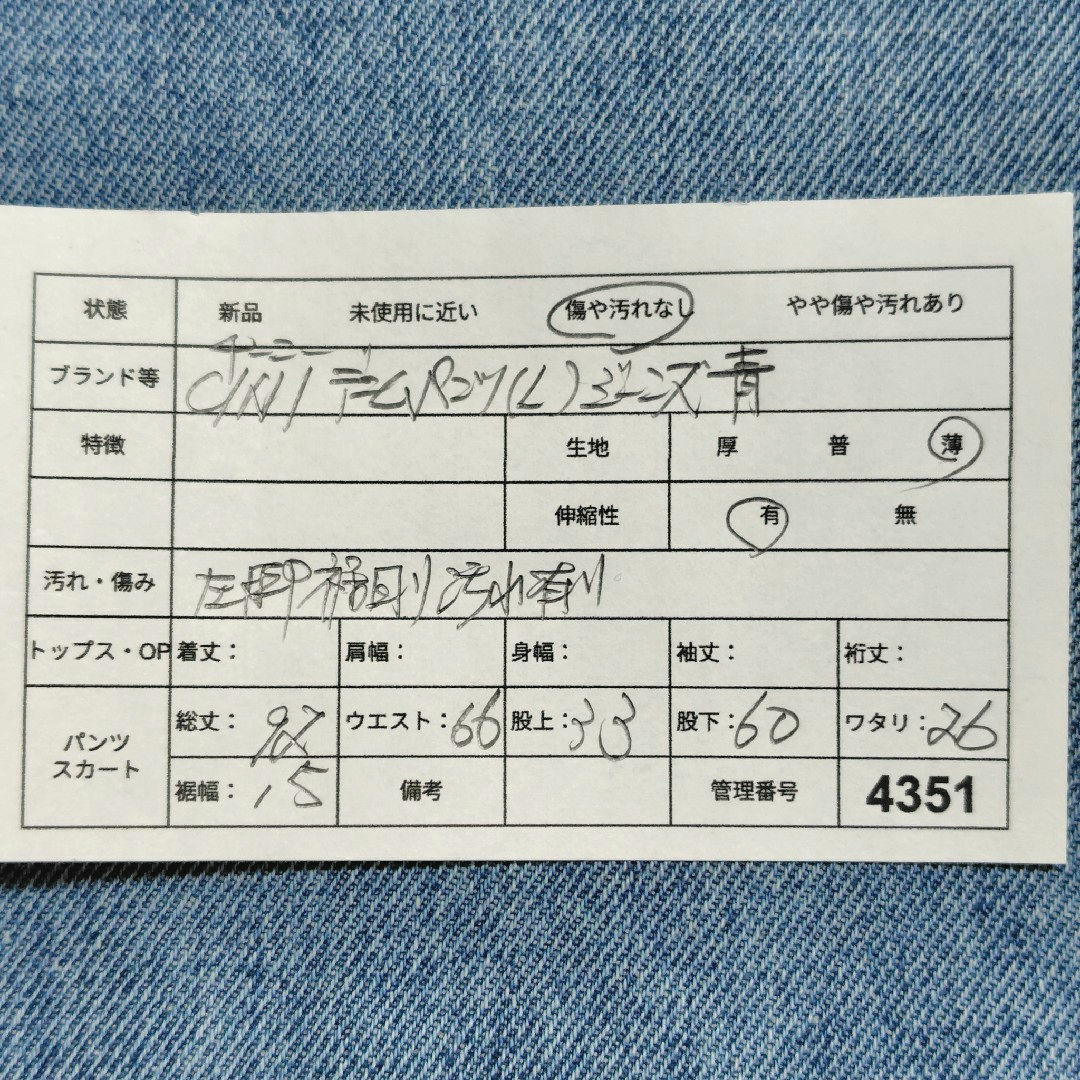 状態 新品 未使用に近い 傷や汚れなし やや傷や汚れあり
ブランド等 デニムパンツ(L)ジーンズ青
特徴 生地 厚 普 薄
伸縮性 有 無
汚れ・傷み 汚れ有り
トップス・OP 着丈： 肩幅： 身幅： 袖丈： 裄丈：
パンツ スカート 総丈： ウエスト：66 股上：33 股下：60 ワタリ：26
裾幅：15 備考 管理番号 4351